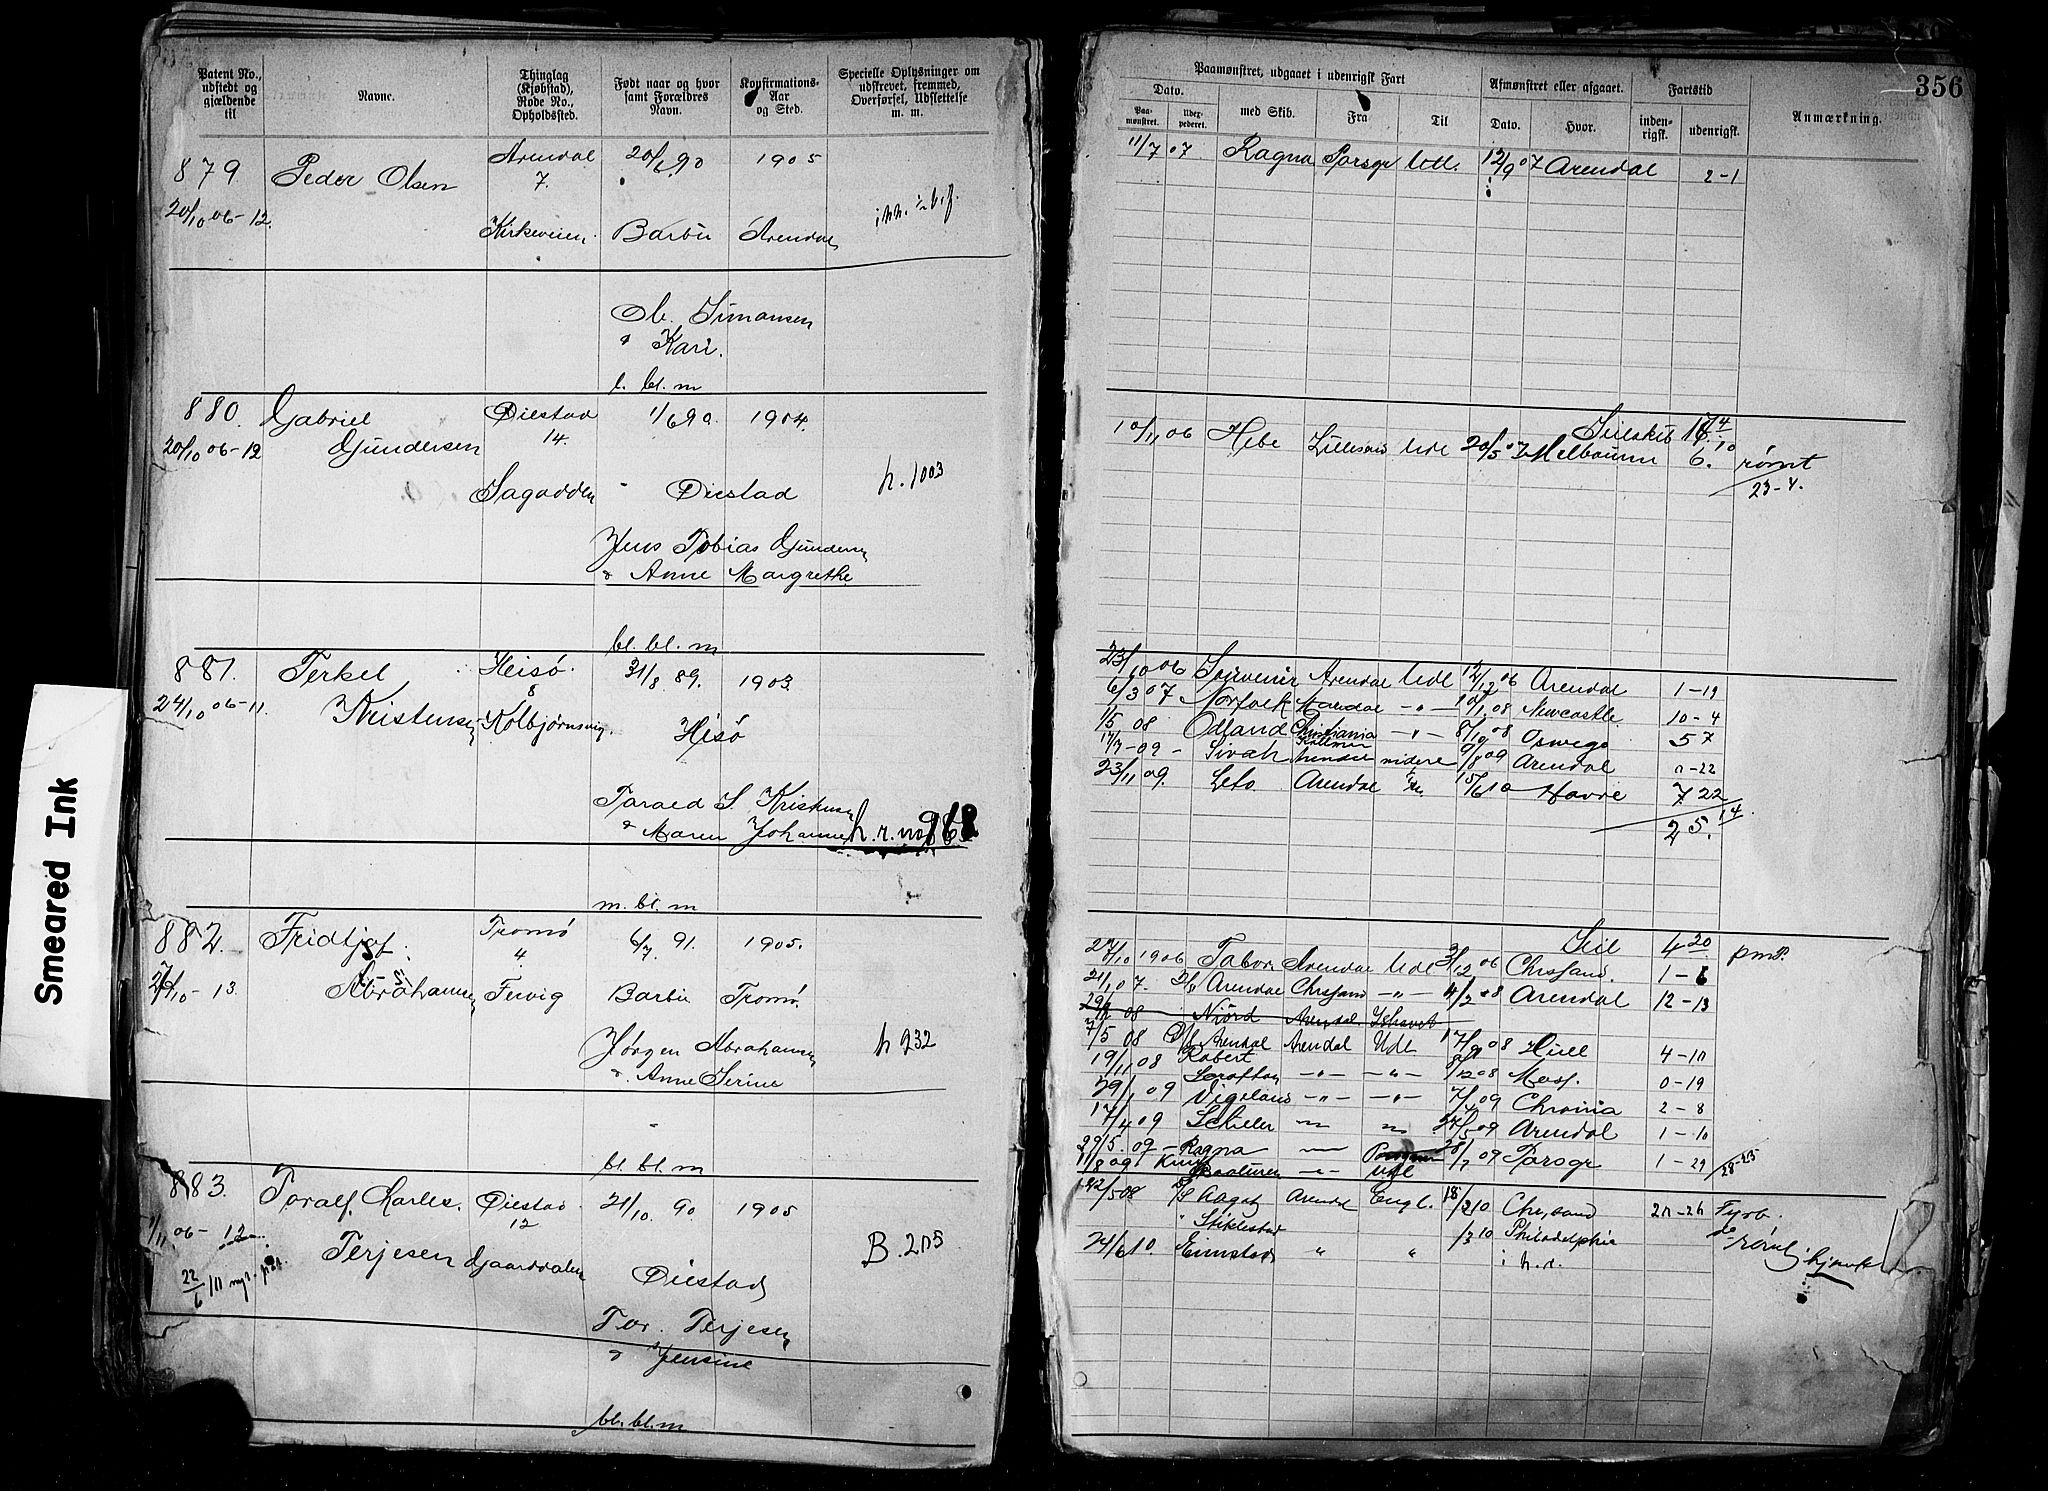 Smeared Ink
Patent No., udstedt og gjældende til
Navne.
Thinglag (Kjøbstad), Rode No., Opholdssted.
Født naar og hvor samt Forældres Navn.
Konfirmations-Aar og Sted.
Specielle Oplysninger om udskrevet, fremmed, Overførsel, Udslettelse m. m.
879 Peder Olsen Arendal 20/1 90 1905
7.
20/10 06-12. Kirkeveien Barbu Arendal
Ole Simonsen
& Kari.
l. bl. m
880. Gabriel Øiestad 1/6 90. 1904.
20/10 06-12 Gundersen 14.
Øiestad h. 1003
Jens Tobias Gundersen
& Anne Margrethe
bl. bl. m
881. Terkel Hisø. 31/8 89. 1903.
8
24/10 06-11 Kristensen Kolbjørnsvig. Hisø
Tarald S. Kristensen
& Maren Johanne h. r. no 968
m. bl. m
882. Fridtjof Tromø 6/7 91. 1905.
4
Abrahamsen Fervig Barbu Tromø.
Jørgen Abrahamsen h 932
& Anne Serine
bl. bl. m
883. Toralf Charles. Øiestad 21/10. 90. 1905
12
1/11 06-12 Terjesen Gaarddalen Øiestad B. 205
22/6
Tor. Terjesen
& Jensine
bl. bl. m
356
Paamønstret, udgaaet i udenrigsk Fart
Afmønstret eller afgaaet.
Fartstid
Anmærkning.
Dato.
Paa-mønstret.
Udex-pederet.
med Skib.
Fra
Til
Dato.
Hvor.
inden-rigsk.
udenrigsk.
11/7 07 Ragna Porsgr Udl. 12/9 07 Arendal 2-1
Seilskib
10/11 06 Hebe Lillesand Udl 20/5 07 Melbourne 6. rømt
23-4.
23/10 06 Souvenir Arendal Udl 12/12 06 Arendal 1-19
6/3 07 Norfolk Arendal -"- 10/1 08 Newcastle 10-4
1/5 08 Odland Christiania -"- 8/10 08 Oswego 5 7
17/7-09 - Sirah 9/8 09 Arendal 0-22
23/11 09. Leto. Arendal 15/6 10 Havre 7 22
25. 14.
Seil 4 20 pmt.
27/10 1906 Tabor Arendal Udl 3/12 06 Chrssand. 1-6
21/1 07. D/S Arendal Chrssand -"- 4/2 08 Arendal 12-13
Niord Arendal Ishavet
7/5 08 D/S Arendal Arendal Udl 17/9 08 Hull 4-10
19/11 08 Robert -"- -"- 8/12 08 Moss. 0-19
29/1 09 Vigeland -"- -"- 7/4 09 Chrania 2-8
17/4 09 Schiller Arendal 1-10
29/5. 09 - Ragna 28/7 09 Porsgr 1-29
11/8 09 -"- Udl
22/5 08 D/S Aagot Arendal Engl. 18/3 10 Chr,sand 20-26 Fyrb.
" Stiklestad /3 10 Philadelphia do rømt
24/6 10. Grimstad " " i h. r. hjemk